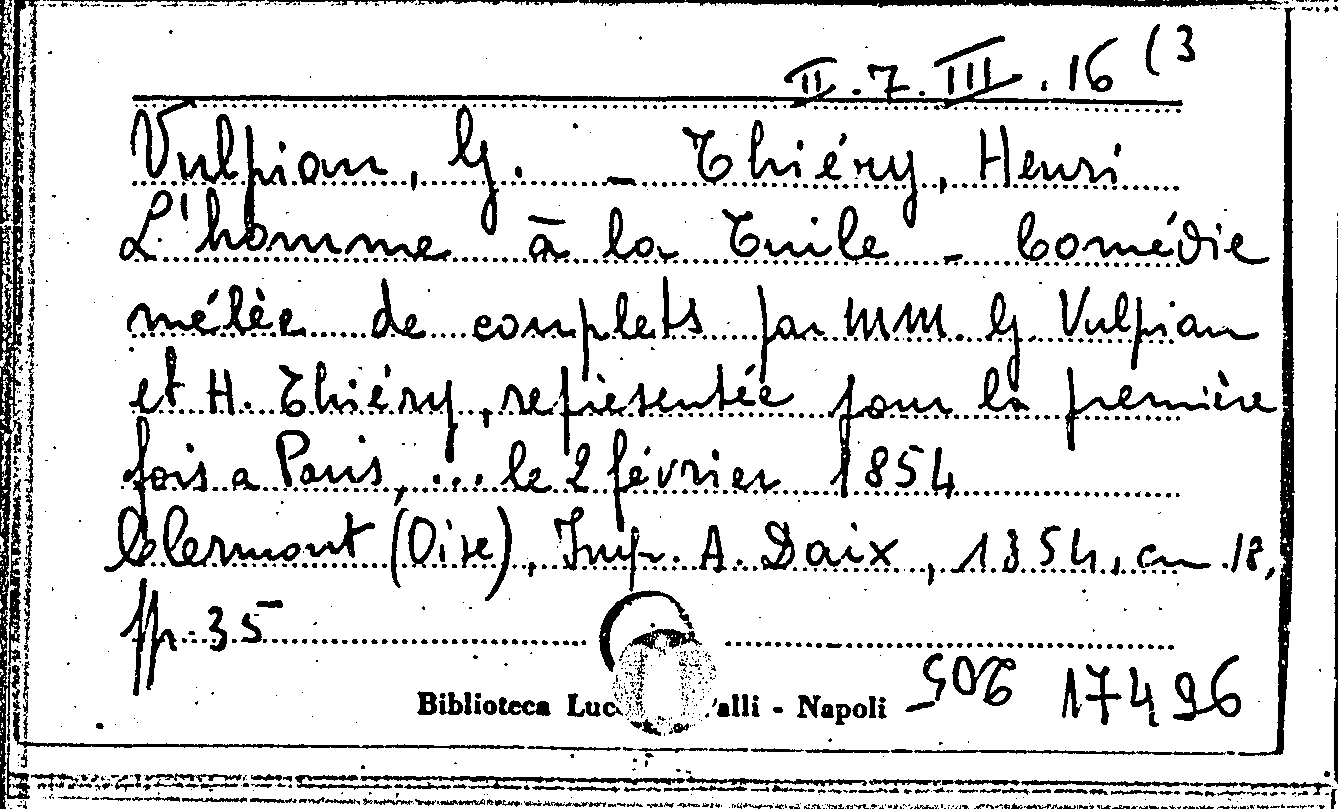 II.7.III.16 (3
Vulpian, G. - Thiéry, Henri
L'homme à la Tuile - Comédie
mélèe de couplets par MM. G. Vulpian
et H. Thiéry, représentée pour la première
fois a Paris, ... le 2 février 1854
Clermont (Oise), Impr. A. Daix, 1854, cm 18,
pp. 35
Biblioteca Luc alli - Napoli 17496